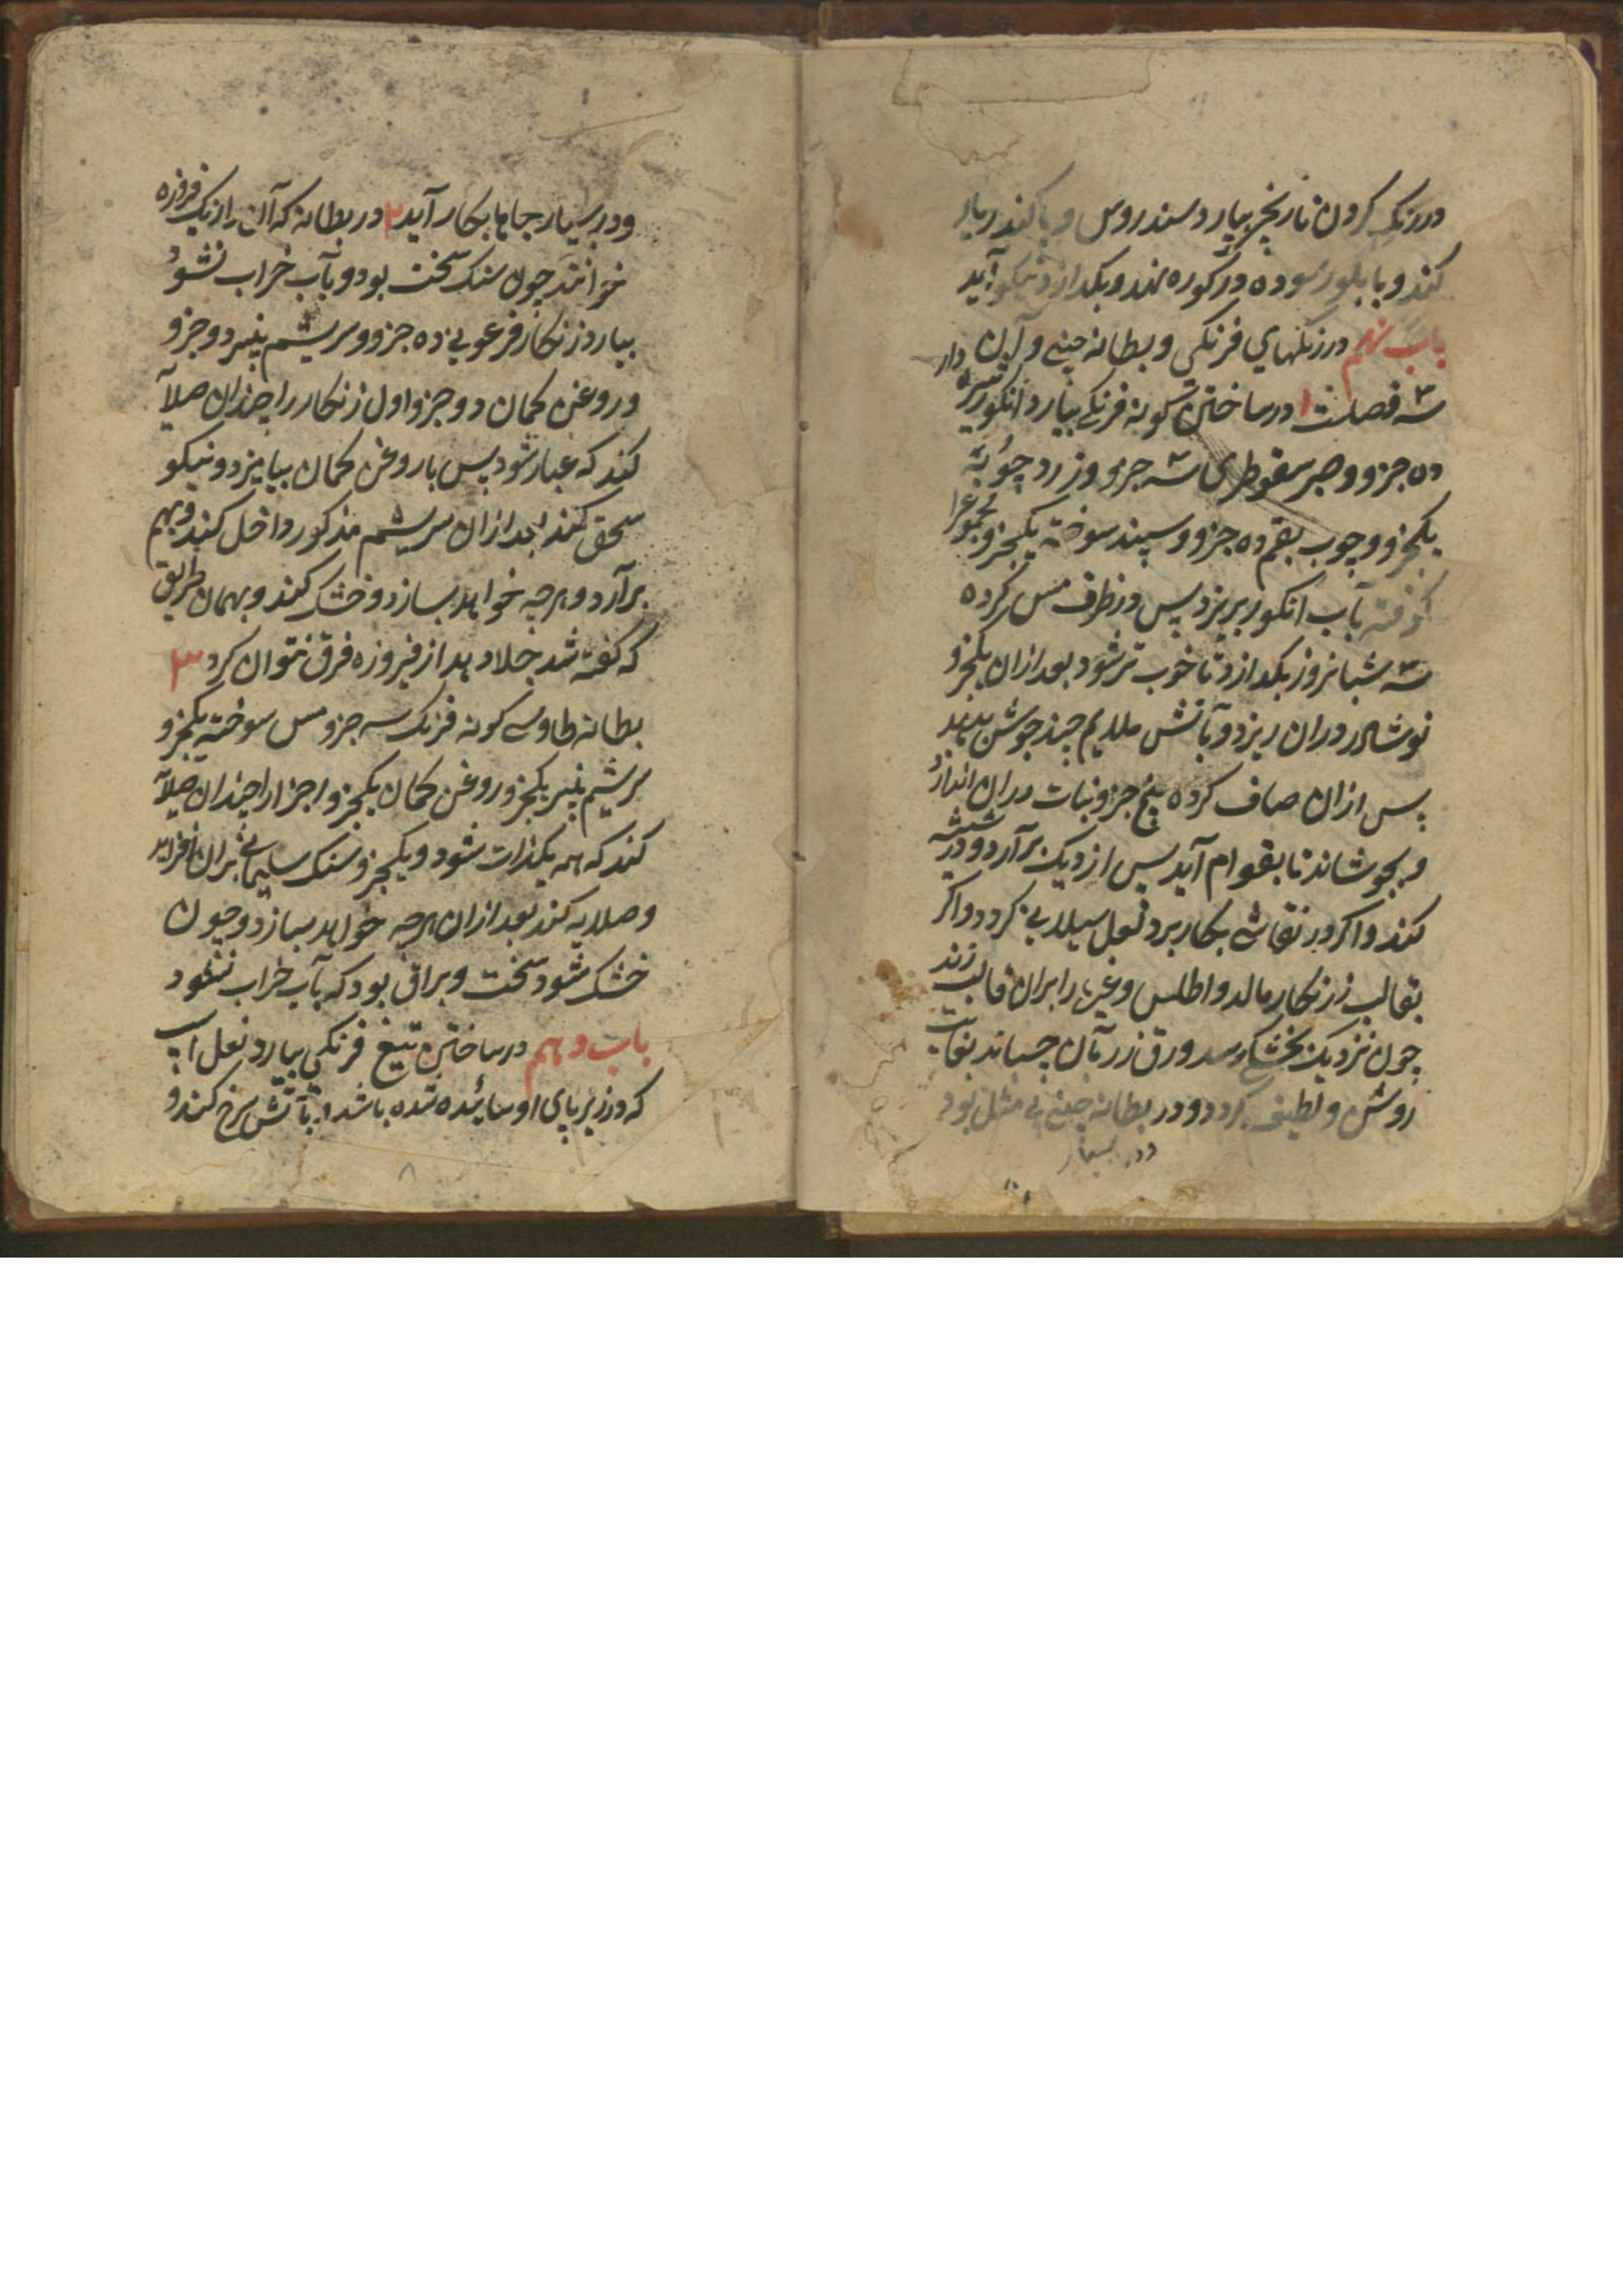 در رنگ کردن نارنج بیارد سندروس و پاکند ریار
کند و با بلور سوده در کوره نهد و بگدازد نیکو آید
باب نهم در رنگهای فرنگی و بطانه چینی و آن
سه فصلست ۱ در ساختن گونه فرنگی بیارد انگور سیاه دار
ده جزو و صبر سقوطری سه جزو و زردچوبه
یکجزو و چوب بقم ده جزو و سپند سوخته یکجزو مجموع را
کوفته بآب انگور بریزد پس در ظرف مس کرده
سه شبانروز بگذارد تا خوب تر شود بعد ازان یکجزو
نوشادر دران ریزد و بآتش ملایم چند جوش بدهد
پس ازان صاف کرده پنج جزو نبات دران اندازد
و بجوشاند تا بقوام آید پس از دیک برآرد و در شیشه
کند و اگر در نقاشی بکار برد لعل سیلابی گردد و اگر
بقالب زرنکار مالد و اطلس و غیره را بران قالب زند
چون نزدیک بخشکی رسد ورق زر بآن چسپاند بغایت
روشن و لطیف گردد و در بطانه چینی بی مثل بود
و در بسیار
و در بسیار جاها بکار آید ۲ در بطانه که آن را رنگ فیروزه
خوانند چون سنک سخت بود و بآب خراب نشود
بیارد زنکار فرعونی ده جزو و سریشم پنیر دو جزو
و روغن کمان دو جزو اول زنکار را چندان صلایه
کند که غبار شود پس با روغن کمان بیامیزد و نیکو
سحق کند بعد ازان سریشم مذکور داخل کند و بهم
برآرد و هرچه خواهد بسازد و خشک کند و بهمان طریق
که گفته شد جلا دهد از فیروزه فرق نتوان کرد ۳
بطانه طاوسی گونه فرنک سه جزو مس سوخته یکجزو
سریشم پنیر یکجزو روغن کمان یکجزو اجزا را چندان صلایه
کند که همه یکذات شود و یکجزو سنک سلیمانی بران افزاید
و صلایه کند بعد ازان هرچه خواهد بسازد و چون
خشک شود سخت و براق بود که بآب خراب نشود
باب دهم در ساختن تیغ فرنکی بیارد نعل اسپ
که در زیر پای او سائیده شده باشد و بآتش سرخ کند و
۸